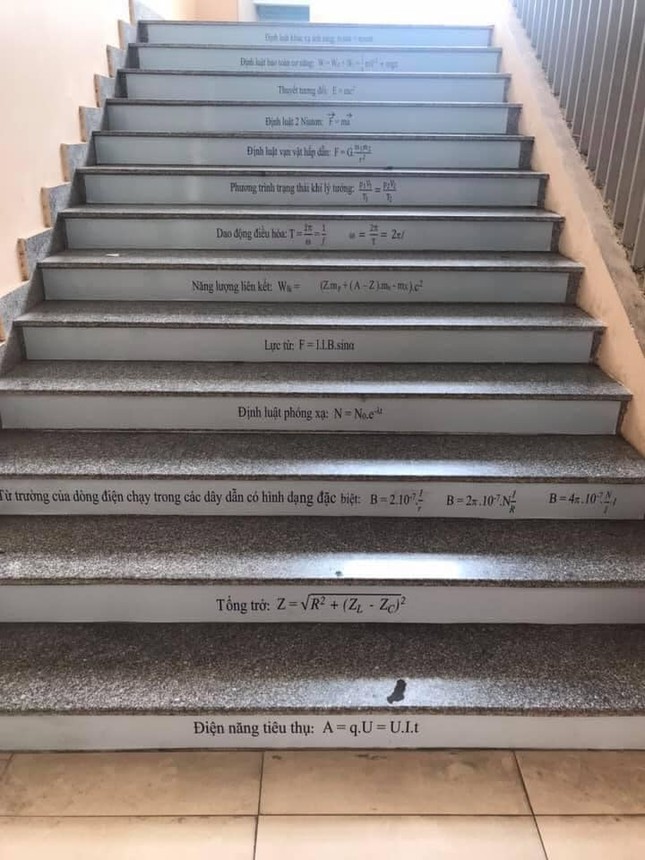 Định luật khúc xạ ánh sáng:
Định luật bảo toàn cơ năng: W = Wđ + Wt = ½ mV² + mgz
Thuyết tương đối: E = mc²
Định luật 2 Niutơn: F⃗ = ma⃗
Định luật vạn vật hấp dẫn: F = G m₁m₂/r²
Phương trình trạng thái khí lý tưởng: p₁V₁/T₁ = p₂V₂/T₂
Dao động điều hòa: T = 2π/ω = 1/f ω = 2π/T = 2πf
Năng lượng liên kết: Wlk = (Z.mp + (A – Z).mn - mX).c²
Lực từ: F = I.l.B.sinα
Định luật phóng xạ: N = N₀.e^-λt
Từ trường của dòng điện chạy trong các dây dẫn có hình dạng đặc biệt: B = 2.10⁻⁷.I/r B = 2π.10⁻⁷.N I/R B = 4π.10⁻⁷.N/l I
Tổng trở: Z = √R² + (Z_L - Z_C)²
Điện năng tiêu thụ: A = q.U = U.I.t